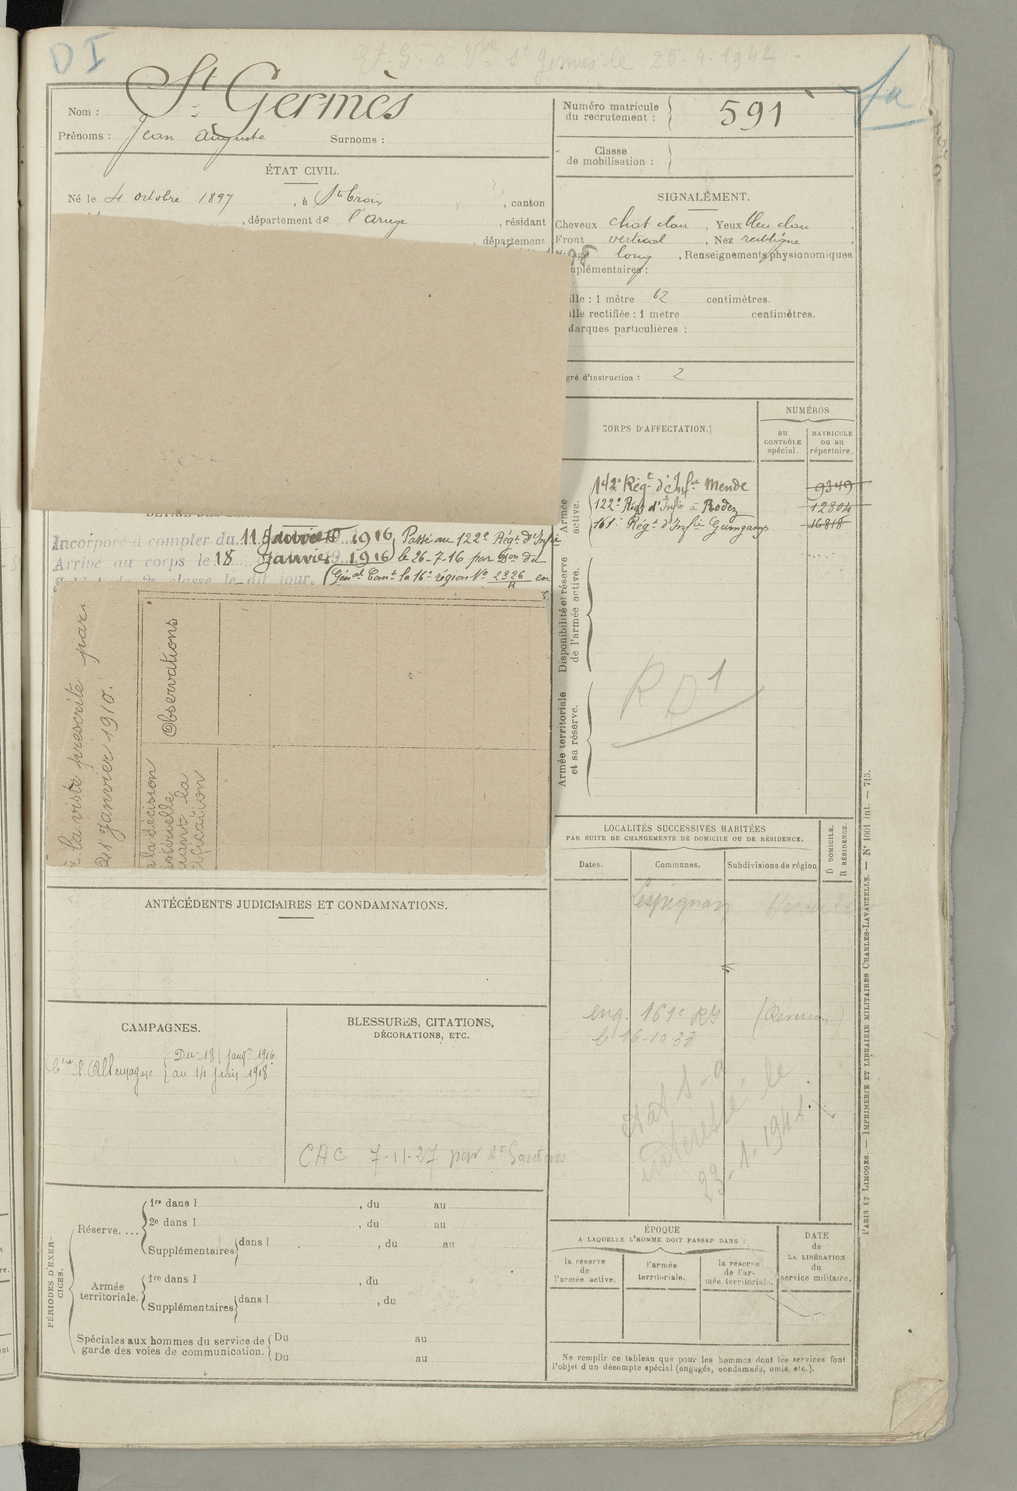 D I
Et. S. à Vve St Germès le 25-4-1942
Nom : St Germès
Prénoms : Jean Auguste Surnoms :
Numéro matricule du recrutement : 591
Classe de mobilisation :
ÉTAT CIVIL.
Né le 4 octobre 1897, à Ste Croix, canton
, département de l'Ariège, résidant
département
SIGNALEMENT.
Cheveux chat clair, Yeux bleu clair,
Front vertical, Nez rectiligne,
long, Renseignements physionomiques
complémentaires :
Taille : 1 mètre 62 centimètres.
Taille rectifiée : 1 mètre centimètres.
Marques particulières :
Degré d'instruction : 2
CORPS D'AFFECTATION.
NUMÉROS
au CONTRÔLE spécial.
MATRICULE ou au répertoire.
Armée active.
142e Régt d'Infie Mende 9349
122e Régt d'Infie à Rodez 12804
161e Régt d'Infie Guingamp 16818
Incorporé à compter du 11 Janvier 1916, Passé au 122e Régt d'Infie
Arrivé au corps le 18 Janvier 1916 le 26-7-16 par Don du
Soldat de 2e classe le dit jour. Génal Comt la 16e région No 2326 en
R
la visite prescrite par
21 Janvier 1910.
Observations
la décision
Disponibilité et réserve de l'armée active.
Armée territoriale et sa réserve.
R D 1
LOCALITÉS SUCCESSIVES HABITÉES
PAR SUITE DE CHANGEMENTS DE DOMICILE OU DE RÉSIDENCE.
Dates. Communes. Subdivisions de région
D DOMICILE.
R RÉSIDENCE.
Lespignan Hérault
eng. 161e
État S-a
intéressé le
23-1-194
ANTÉCÉDENTS JUDICIAIRES ET CONDAMNATIONS.
CAMPAGNES.
Ctre l'Allemagne Du 18 janvr 1916
au 14 juin 1918
BLESSURES, CITATIONS,
DÉCORATIONS, ETC.
CAC 7-11-27 par St Gaudens
PÉRIODES D'EXERCICES.
Réserve....
1re dans l , du au
2e dans l , du au
Supplémentaires dans l , du au
Armée territoriale.
1re dans l , du
Supplémentaires dans l , du
Spéciales aux hommes du service de garde des voies de communication.
Du au
Du au
ÉPOQUE
A LAQUELLE L'HOMME DOIT PASSER DANS :
la réserve de l'armée active.
l'armée territoriale.
la réserve de l'armée territoriale.
DATE de LA LIBÉRATION du service militaire.
Ne remplir ce tableau que pour les hommes dont les services font
l'objet d'un décompte spécial (engagés, condamnés, omis, etc.).
PARIS ET LIMOGES. — IMPRIMERIE ET LIBRAIRIE MILITAIRES CHARLES-LAVAUZELLE. — No 1001 int. — 715.